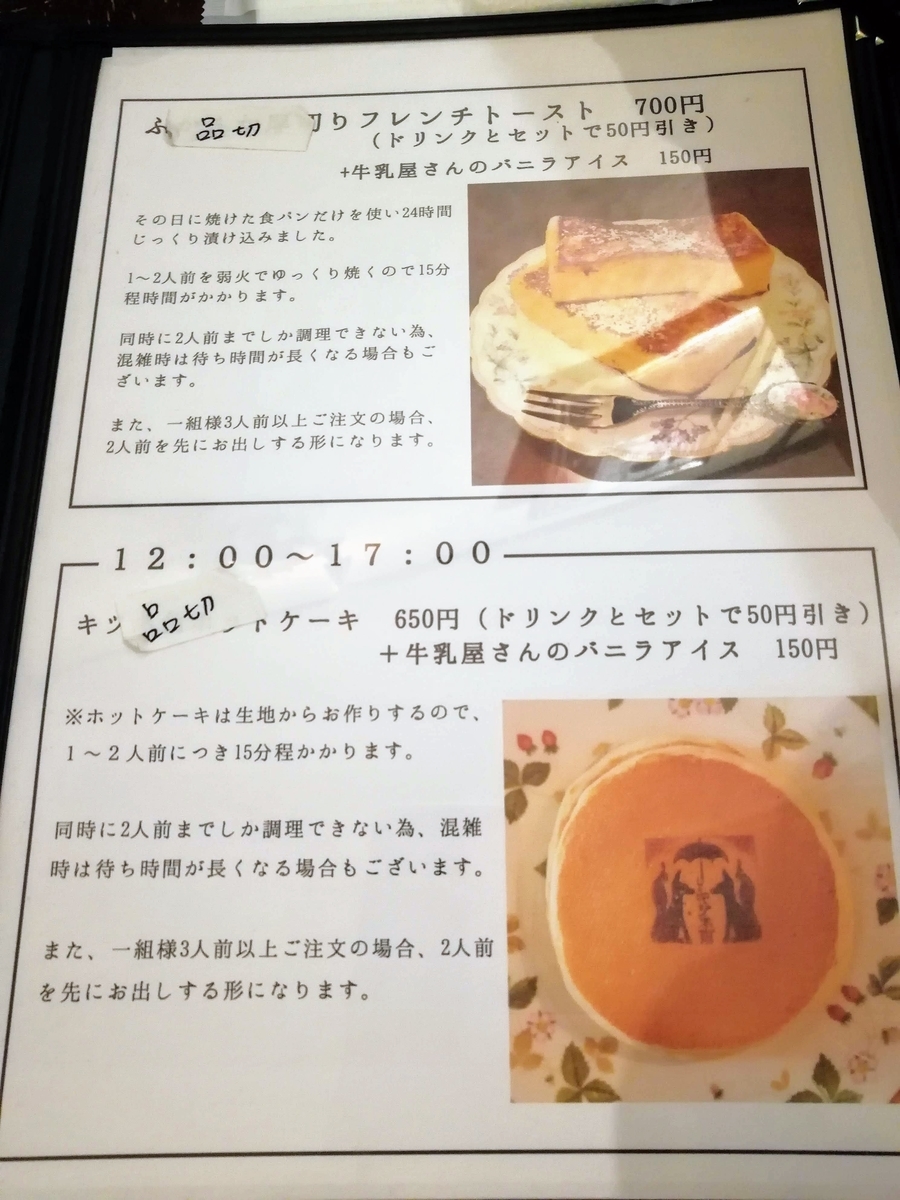 ふ 品切 切りフレンチトースト 700円
(ドリンクとセットで50円引き)
+牛乳屋さんのバニラアイス 150円
その日に焼けた食パンだけを使い24時間
じっくり漬け込みました。
1〜2人前を弱火でゆっくり焼くので15分
程時間がかかります。
同時に2人前までしか調理できない為、
混雑時は待ち時間が長くなる場合もご
ざいます。
また、一組様3人前以上ご注文の場合、
2人前を先にお出しする形になります。
12:00〜17:00
キッ 品切 ットケーキ 650円(ドリンクとセットで50円引き)
+牛乳屋さんのバニラアイス 150円
※ホットケーキは生地からお作りするので、
1〜2人前につき15分程かかります。
同時に2人前までしか調理できない為、混雑
時は待ち時間が長くなる場合もございます。
また、一組様3人前以上ご注文の場合、2人前
を先にお出しする形になります。